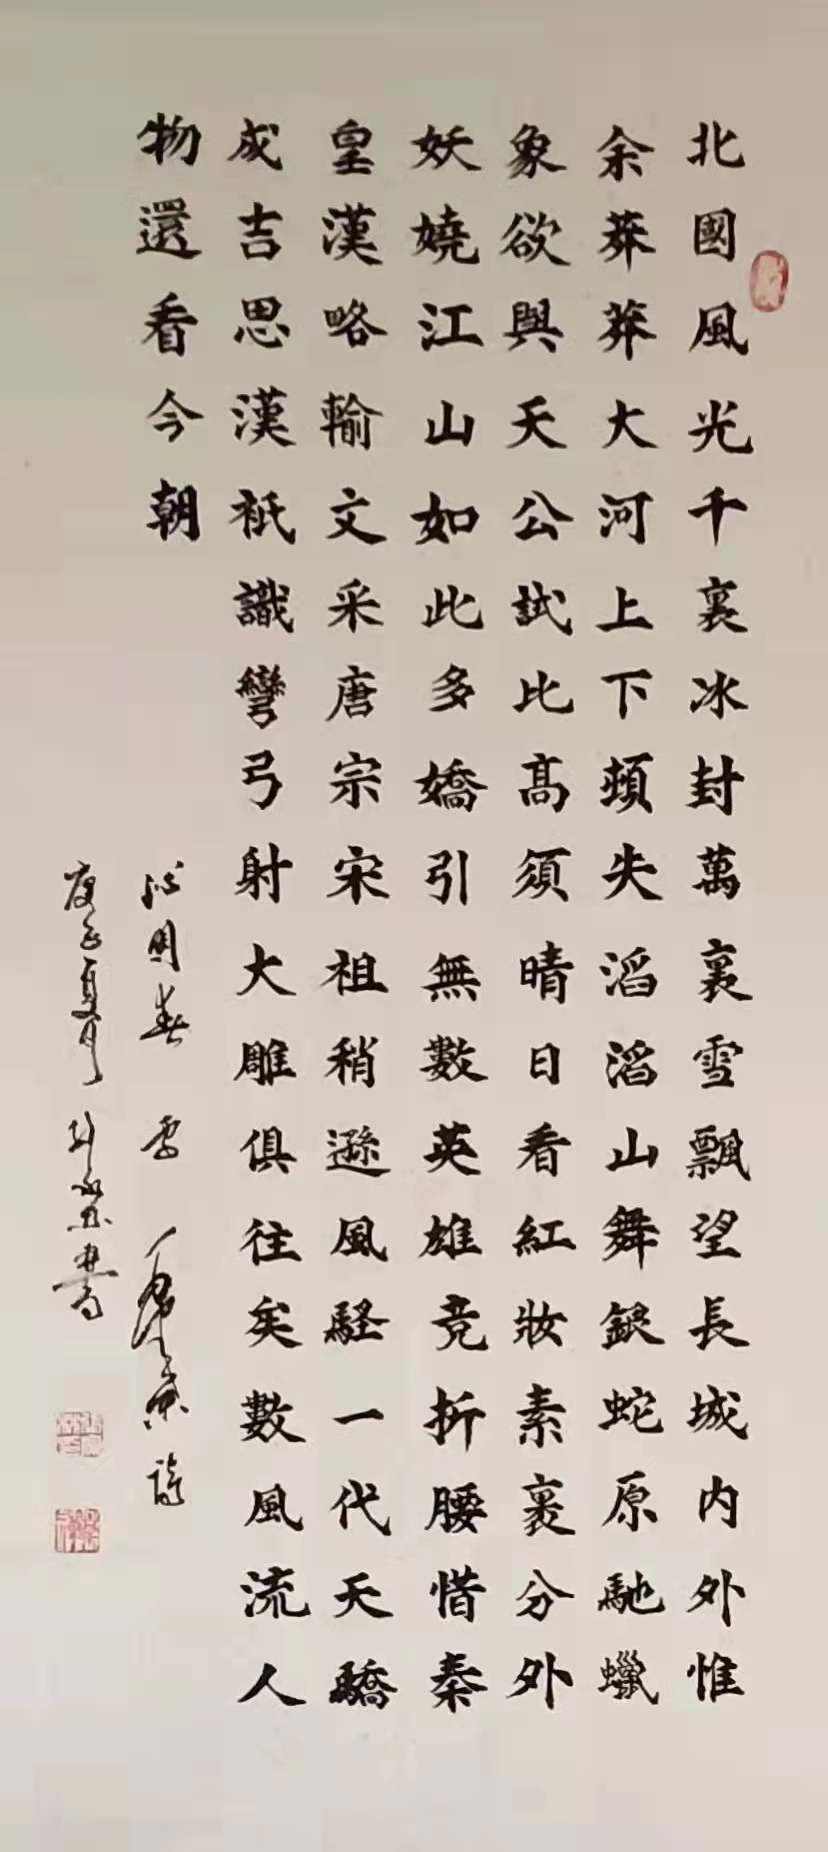 北國風光千裏冰封萬裏雪飄望長城内外惟
余莽莽大河上下頓失滔滔山舞銀蛇原馳蠟
象欲與天公試比高須晴日看紅妝素裹分外
妖嬈江山如此多嬌引無數英雄竞折腰惜秦
皇漢略輸文采唐宗宋祖稍遜風騷一代天驕
成吉思漢祇識彎弓射大雕俱往矣數風流人
物還看今朝
沁園春 雪 毛澤東詩
庚子夏月 書